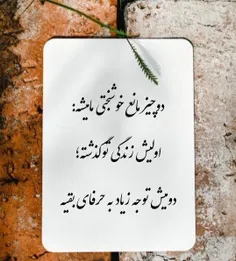 دو چیز مانع خوشبختی ما میشه:
اولیش زندگی تو گذشته؛
دومیش توجه زیاد به حرفای بقیه